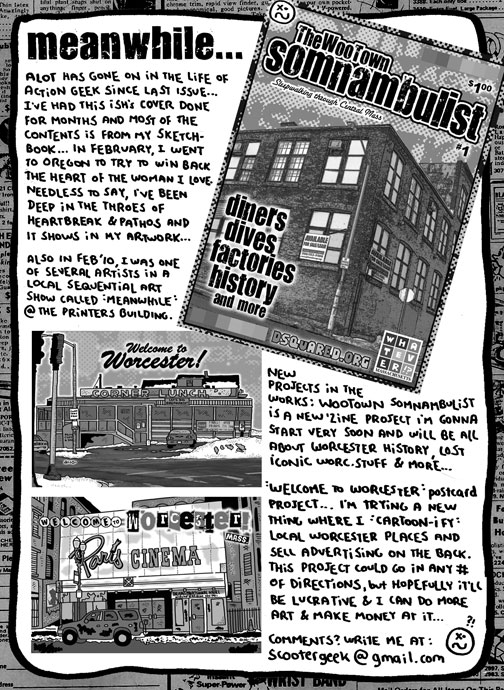 meanwhile...
ALOT HAS GONE ON IN THE LIFE OF
ACTION GEEK SINCE LAST ISSUE...
I'VE HAD THIS ISH'S COVER DONE
FOR MONTHS AND MOST OF THE
CONTENTS IS FROM MY SKETCH-
BOOK... IN FEBRUARY, I WENT
TO OREGON TO TRY TO WIN BACK
THE HEART OF THE WOMAN I LOVE.
NEEDLESS TO SAY, I'VE BEEN
DEEP IN THE THROES OF
HEARTBREAK & PATHOS AND
IT SHOWS IN MY ARTWORK...
ALSO IN FEB '10, I WAS ONE
OF SEVERAL ARTISTS IN A
LOCAL SEQUENTIAL ART
SHOW CALLED :MEANWHILE:
@ THE PRINTERS BUILDING.
The WooTown
somnambulist
Sleepwalking through Central Mass
$1.00
#1
diners
dives
factories
history
and more
AVAILABLE
DSQUARED.ORG
WHA
TEV
ER
Welcome to
Worcester!
CORNER LUNCH
WELCOME TO Worcester!
MASS
Paris
CINEMA
NEW
PROJECTS IN THE
WORKS: WOOTOWN SOMNAMBULIST
IS A NEW 'ZINE PROJECT I'M GONNA
START VERY SOON AND WILL BE ALL
ABOUT WORCESTER HISTORY, LOST
ICONIC WORC. STUFF & MORE...
:WELCOME TO WORCESTER: postcard
PROJECT... I'M TRYING A NEW
THING WHERE I :CARTOON-IFY:
LOCAL WORCESTER PLACES AND
SELL ADVERTISING ON THE BACK.
THIS PROJECT COULD GO IN ANY #
OF DIRECTIONS, but HOPEFULLY IT'LL
BE LUCRATIVE & I CAN DO MORE
ART & MAKE MONEY AT IT...
?!
COMMENTS? WRITE ME AT:
scootergeek@gmail.com
WRIST BAND
Super-Power